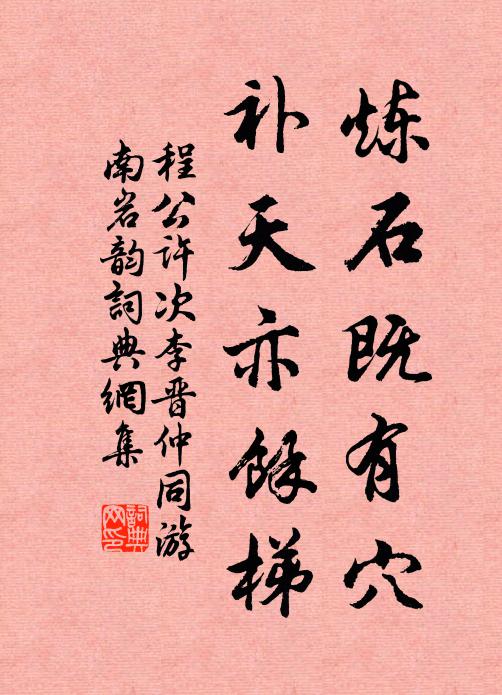 炼石既有穴
补天亦馀梯
程公许次李晋仲同游
南岩韵词典網集
詞典网印